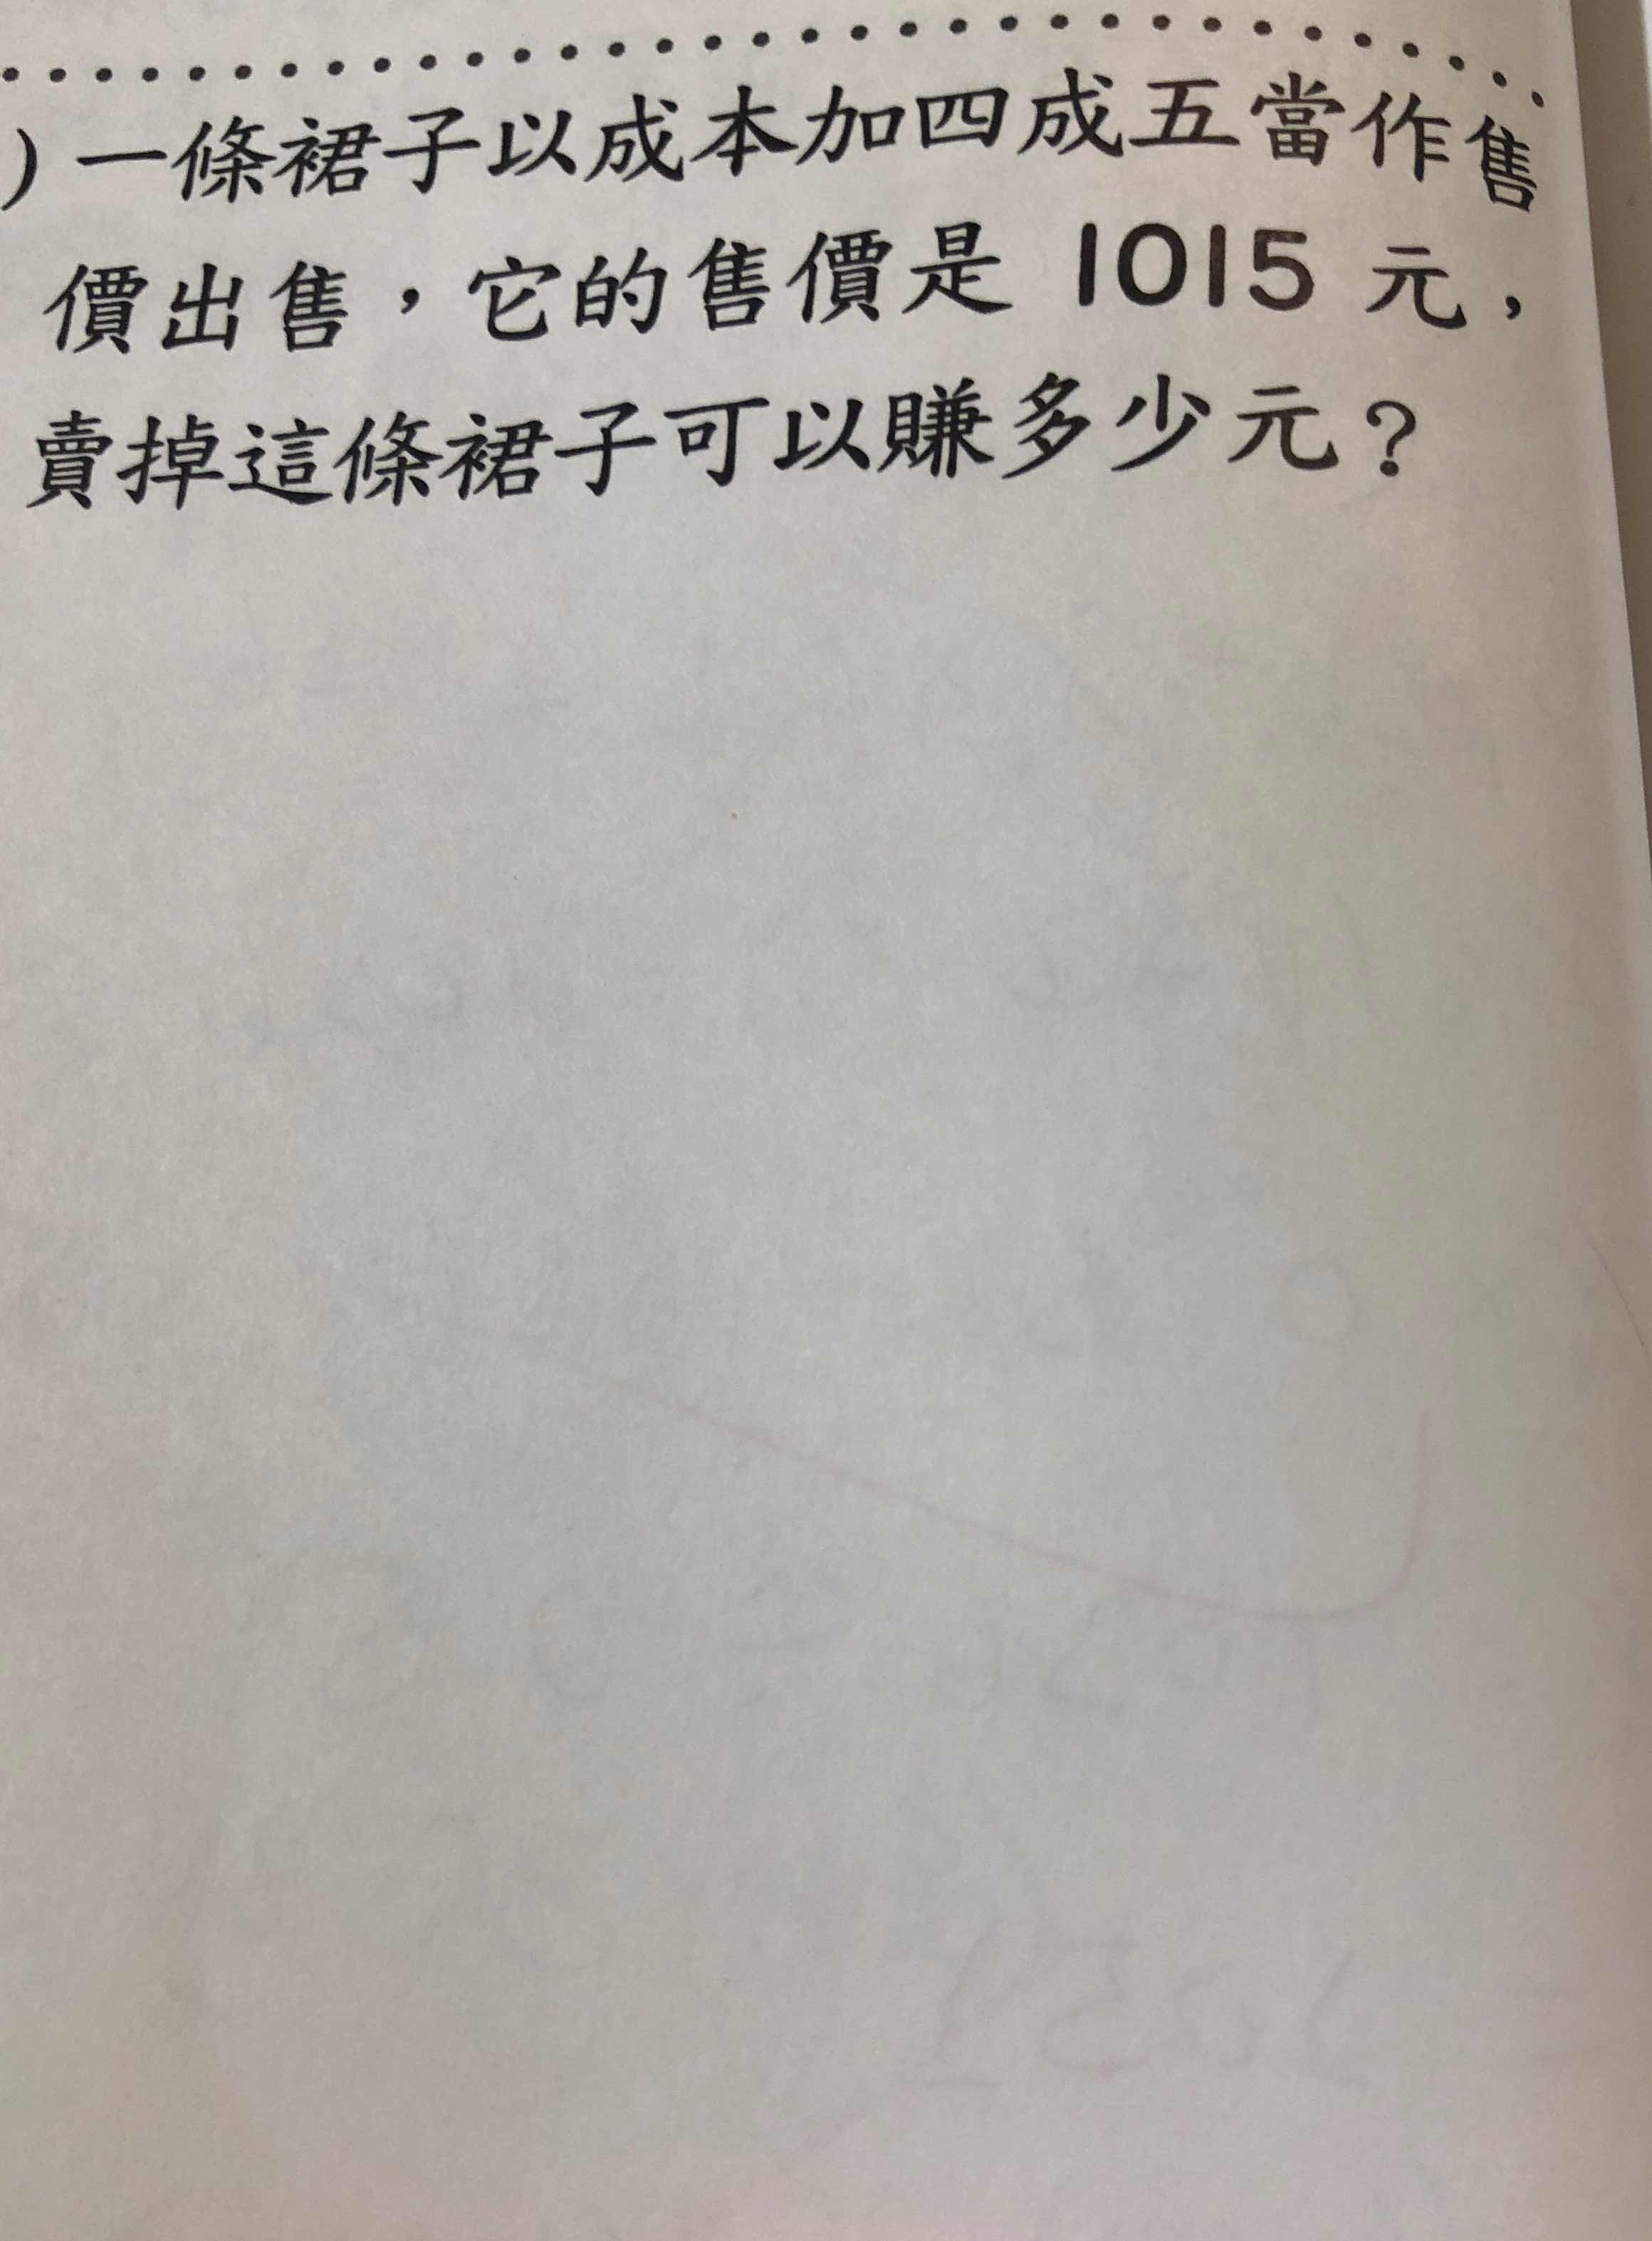 )一條裙子以成本加四成五當作售
價出售，它的售價是 1015 元，
賣掉這條裙子可以賺多少元？